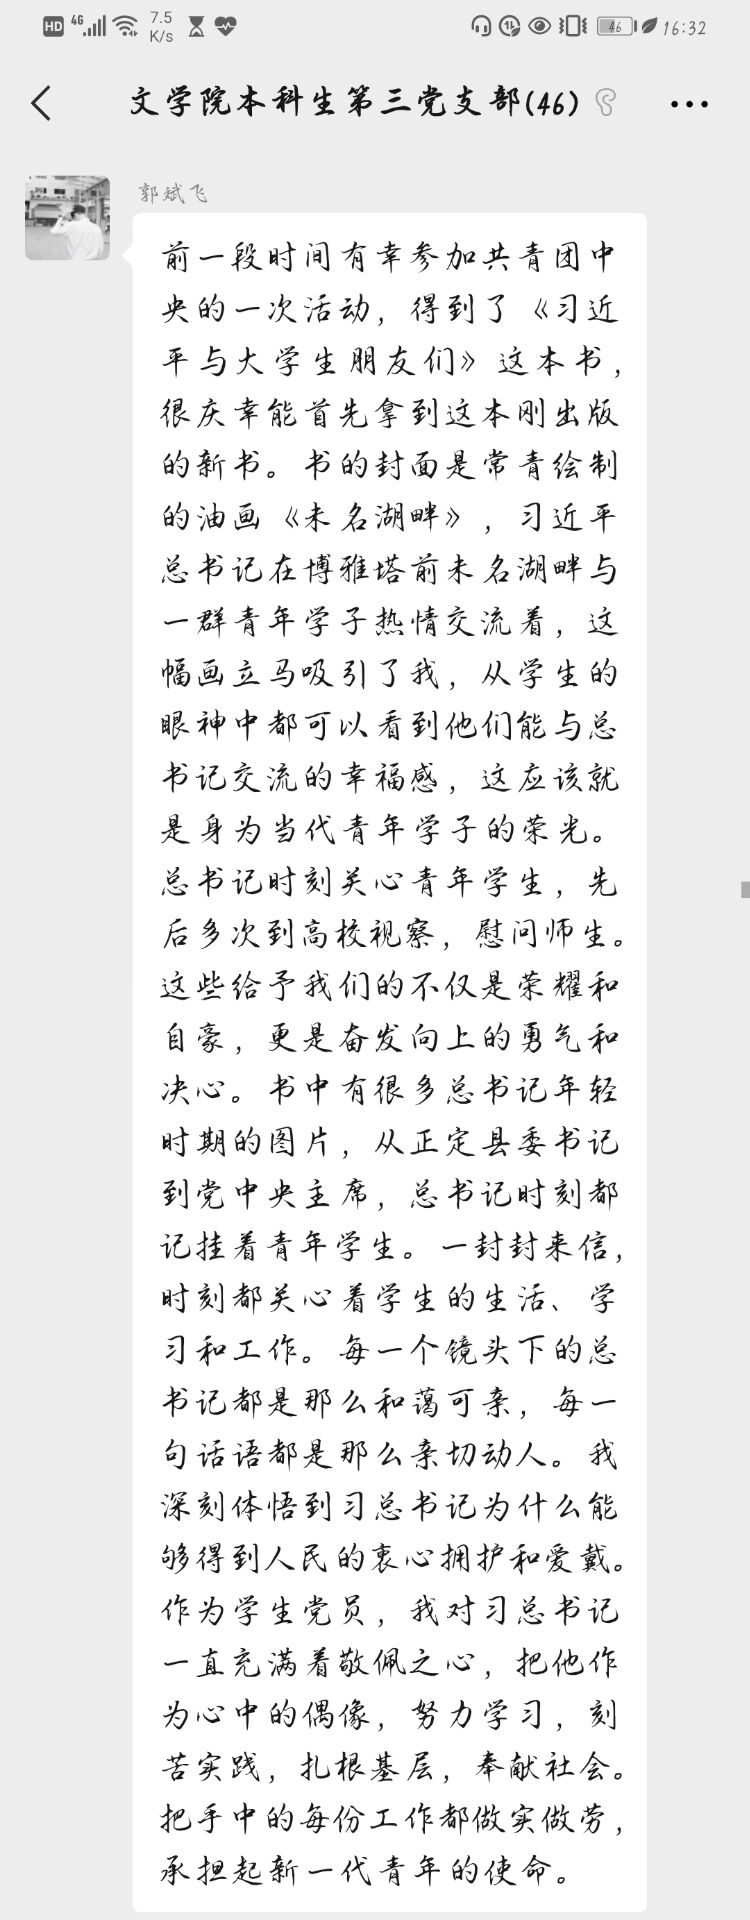 HD 4G 7.5 K/s 46 16:32
文学院本科生第三党支部(46)
郭斌飞
前一段时间有幸参加共青团中
央的一次活动，得到了《习近
平与大学生朋友们》这本书，
很庆幸能首先拿到这本刚出版
的新书。书的封面是常青绘制
的油画《未名湖畔》，习近平
总书记在博雅塔前未名湖畔与
一群青年学子热情交流着，这
幅画立马吸引了我，从学生的
眼神中都可以看到他们能与总
书记交流的幸福感，这应该就
是身为当代青年学子的荣光。
总书记时刻关心青年学生，先
后多次到高校视察，慰问师生。
这些给予我们的不仅是荣耀和
自豪，更是奋发向上的勇气和
决心。书中有很多总书记年轻
时期的图片，从正定县委书记
到党中央主席，总书记时刻都
记挂着青年学生。一封封来信，
时刻都关心着学生的生活、学
习和工作。每一个镜头下的总
书记都是那么和蔼可亲，每一
句话语都是那么亲切动人。我
深刻体悟到习总书记为什么能
够得到人民的衷心拥护和爱戴。
作为学生党员，我对习总书记
一直充满着敬佩之心，把他作
为心中的偶像，努力学习，刻
苦实践，扎根基层，奉献社会。
把手中的每份工作都做实做劳，
承担起新一代青年的使命。